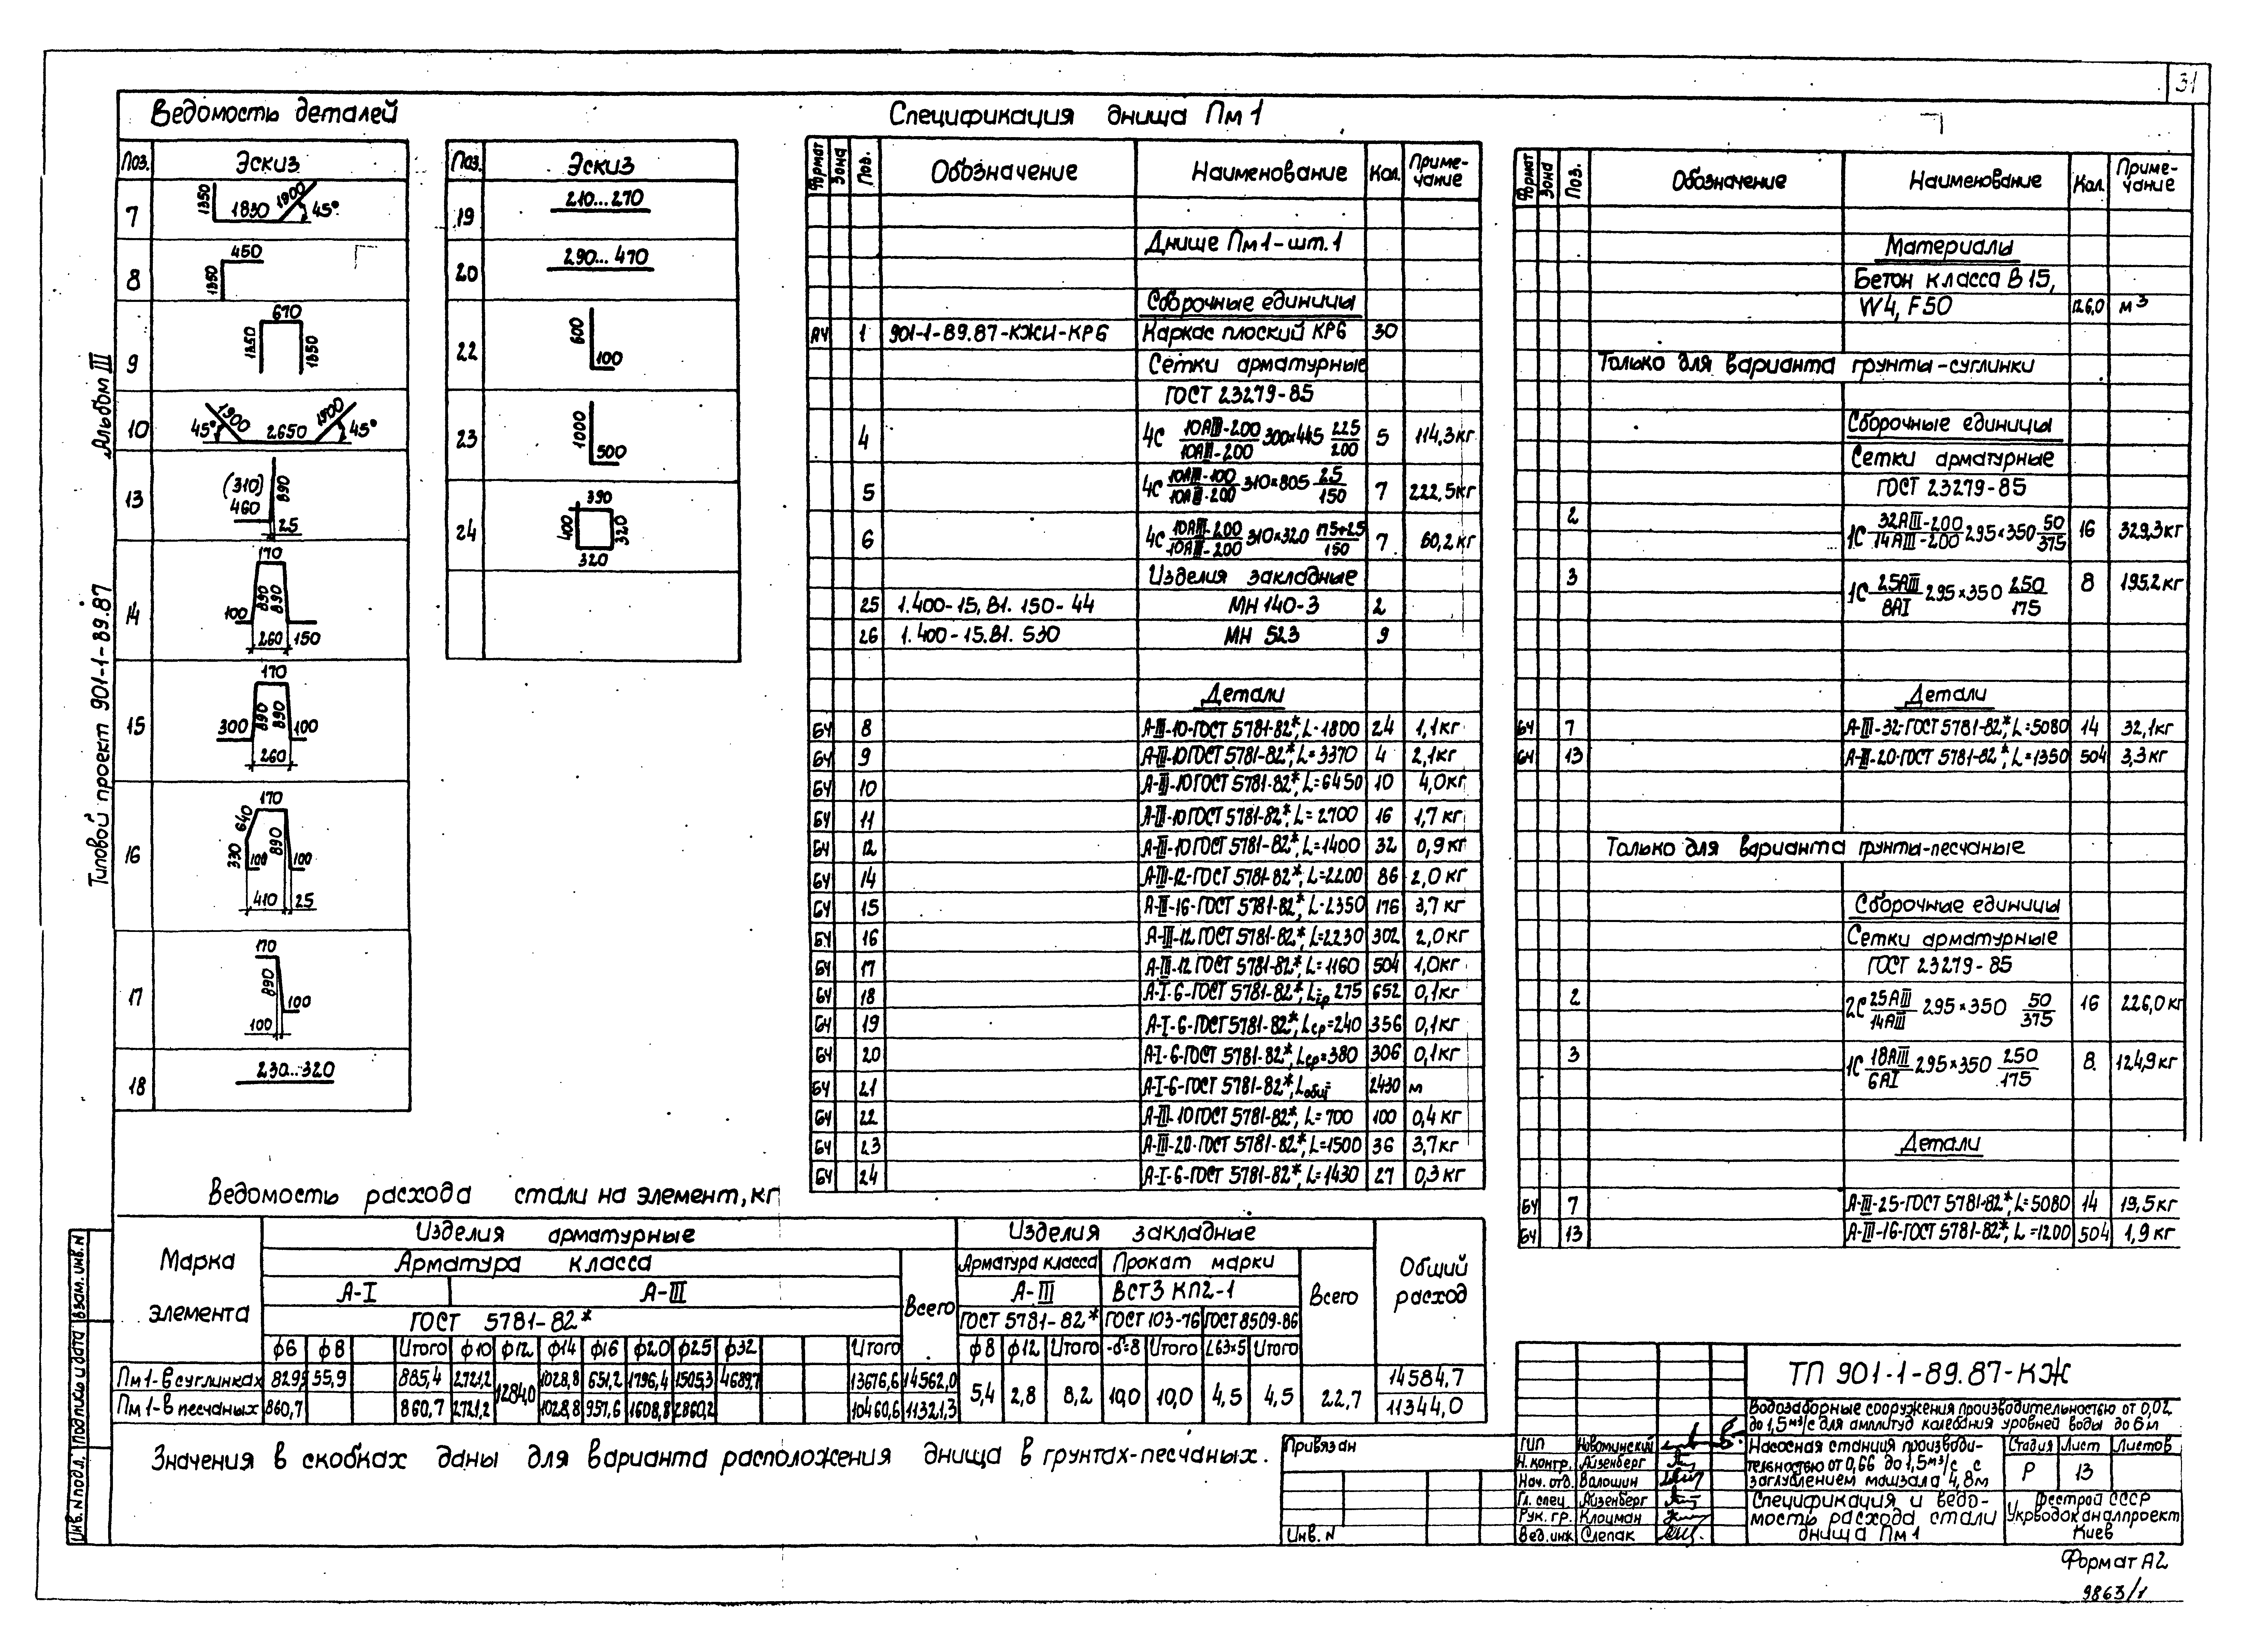 31
Ведомость деталей
Поз. Эскиз
7 1350 1830 1900 45°
8 450 1350
9 670 1350 1350
10 1900 1900 45° 2650 45°
13 (310) 460 890 25
14 170 890 890 100 260 150
15 170 890 890 300 100 260
16 170 640 330 890 100 100 410 25
17 170 890 100 100
18 230...320
Поз. Эскиз
19 210...270
20 290...470
22 600 100
23 1000 500
24 390 400 320 320
Спецификация днища Пм1
Формат Зона Поз. Обозначение Наименование Кол. Приме-чание
Днище Пм1-шт.1
Сборочные единицы
А4 1 901-1-89.87-КЖИ-КР6 Каркас плоский КР6 30
Сетки арматурные
ГОСТ 23279-85
4 4С 10АIII-200/10АIII-200 300×445 225/200 5 114,3кг
5 4С 10АIII-100/10АIII-200 310×805 25/150 7 222,5кг
6 4С 10АIII-200/10АIII-200 310×320 175+25/150 7 60,2кг
Изделия закладные
25 1.400-15, В1. 150-44 МН 140-3 2
26 1.400-15.В1. 530 МН 523 9
Детали
БЧ 8 А-III-10-ГОСТ 5781-82*, L-1800 24 1,1кг
БЧ 9 А-III-10ГОСТ 5781-82*, L=3370 4 2,1кг
БЧ 10 А-III-10ГОСТ 5781-82*, L=6450 10 4,0кг
БЧ 11 А-III-10ГОСТ 5781-82*, L=2700 16 1,7кг
БЧ 12 А-III-10ГОСТ 5781-82*, L=1400 32 0,9кг
БЧ 14 А-III-12-ГОСТ 5781-82*, L=2200 86 2,0кг
БЧ 15 А-III-16-ГОСТ 5781-82*, L-2350 176 3,7кг
БЧ 16 А-III-12ГОСТ 5781-82*, L=2230 302 2,0кг
БЧ 17 А-III-12ГОСТ 5781-82*, L=1160 504 1,0кг
БЧ 18 А-I-6-ГОСТ 5781-82*, Lср=275 652 0,1кг
БЧ 19 А-I-6-ГОСТ 5781-82*, Lср=240 356 0,1кг
БЧ 20 А-I-6-ГОСТ 5781-82*, Lср=380 306 0,1кг
БЧ 21 А-I-6-ГОСТ 5781-82*, Lобщ= 2430 м
БЧ 22 А-III-10ГОСТ 5781-82*, L=700 100 0,4кг
БЧ 23 А-III-20-ГОСТ 5781-82*, L=1500 36 3,7кг
БЧ 24 А-I-6-ГОСТ 5781-82*, L=1430 27 0,3кг
Формат Зона Поз. Обозначение Наименование Кол. Приме-чание
Материалы
Бетон класса В15,
W4, F50 126,0 м³
Только для варианта грунты-суглинки
Сборочные единицы
Сетки арматурные
ГОСТ 23279-85
2 1С 32АIII-200/14АIII-200 295×350 50/375 16 329,3кг
3 1С 25АIII/8АI 295×350 250/175 8 195,2кг
Детали
БЧ 7 А-III-32-ГОСТ 5781-82*, L=5080 14 32,1кг
БЧ 13 А-III-20-ГОСТ 5781-82*, L=1350 504 3,3кг
Только для варианта грунты-песчаные
Сборочные единицы
Сетки арматурные
ГОСТ 23279-85
2 2С 25АIII/14АIII 295×350 50/375 16 226,0кг
3 1С 18АIII/6АI 295×350 250/175 8 124,9кг
Детали
БЧ 7 А-III-25-ГОСТ 5781-82*, L=5080 14 19,5кг
БЧ 13 А-III-16-ГОСТ 5781-82*, L=1200 504 1,9кг
Ведомость расхода стали на элемент, кг
Марка элемента Изделия арматурные Изделия закладные Общий расход
Арматура класса Всего Арматура класса Прокат марки Всего
А-I А-III А-III ВСТ3 КП2-1
ГОСТ 5781-82* ГОСТ 5781-82* ГОСТ 103-76 ГОСТ 8509-86
ф6 ф8 Итого ф10 ф12 ф14 ф16 ф20 ф25 ф32 Итого ф8 ф12 Итого -δ=8 Итого L63×5 Итого
Пм1-в суглинках 829,5 55,9 885,4 2721,2 1284,0 1028,8 651,2 1796,4 1505,3 4689,7 13676,6 14562,0 5,4 2,8 8,2 10,0 10,0 4,5 4,5 22,7 14584,7
Пм1-в песчаных 860,7 860,7 2721,2 1028,8 957,6 1608,8 2860,2 10460,6 11321,3 11344,0
Значения в скобках даны для варианта расположения днища в грунтах-песчаных.
Альбом III
Типовой проект 901-1-89.87
Инв. N подл. Подпись и дата Взам. инв. N
Привязан
Инв. N
ТП 901-1-89.87-КЖ
Водозаборные сооружения производительностью от 0,02
до 1,5м³/с для амплитуд колебания уровней воды до 6м
ГИП Новоминский
Н.контр. Айзенберг
Нач. отд. Валошин
Гл. спец. Айзенберг
Рук. гр. Клоцман
Вед.инж Слепак
Насосная станция производи-
тельностью от 0,66 до 1,5м³/с с
заглублением машзала 4,8м
Стадия Лист Листов
Р 13
Спецификация и ведо-
мость расхода стали
днища Пм1
Госстрой СССР
Укрводоканалпроект
Киев
Формат А2
9863/1